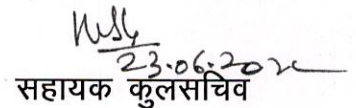 23.06.202
सहायक कुलसचिव